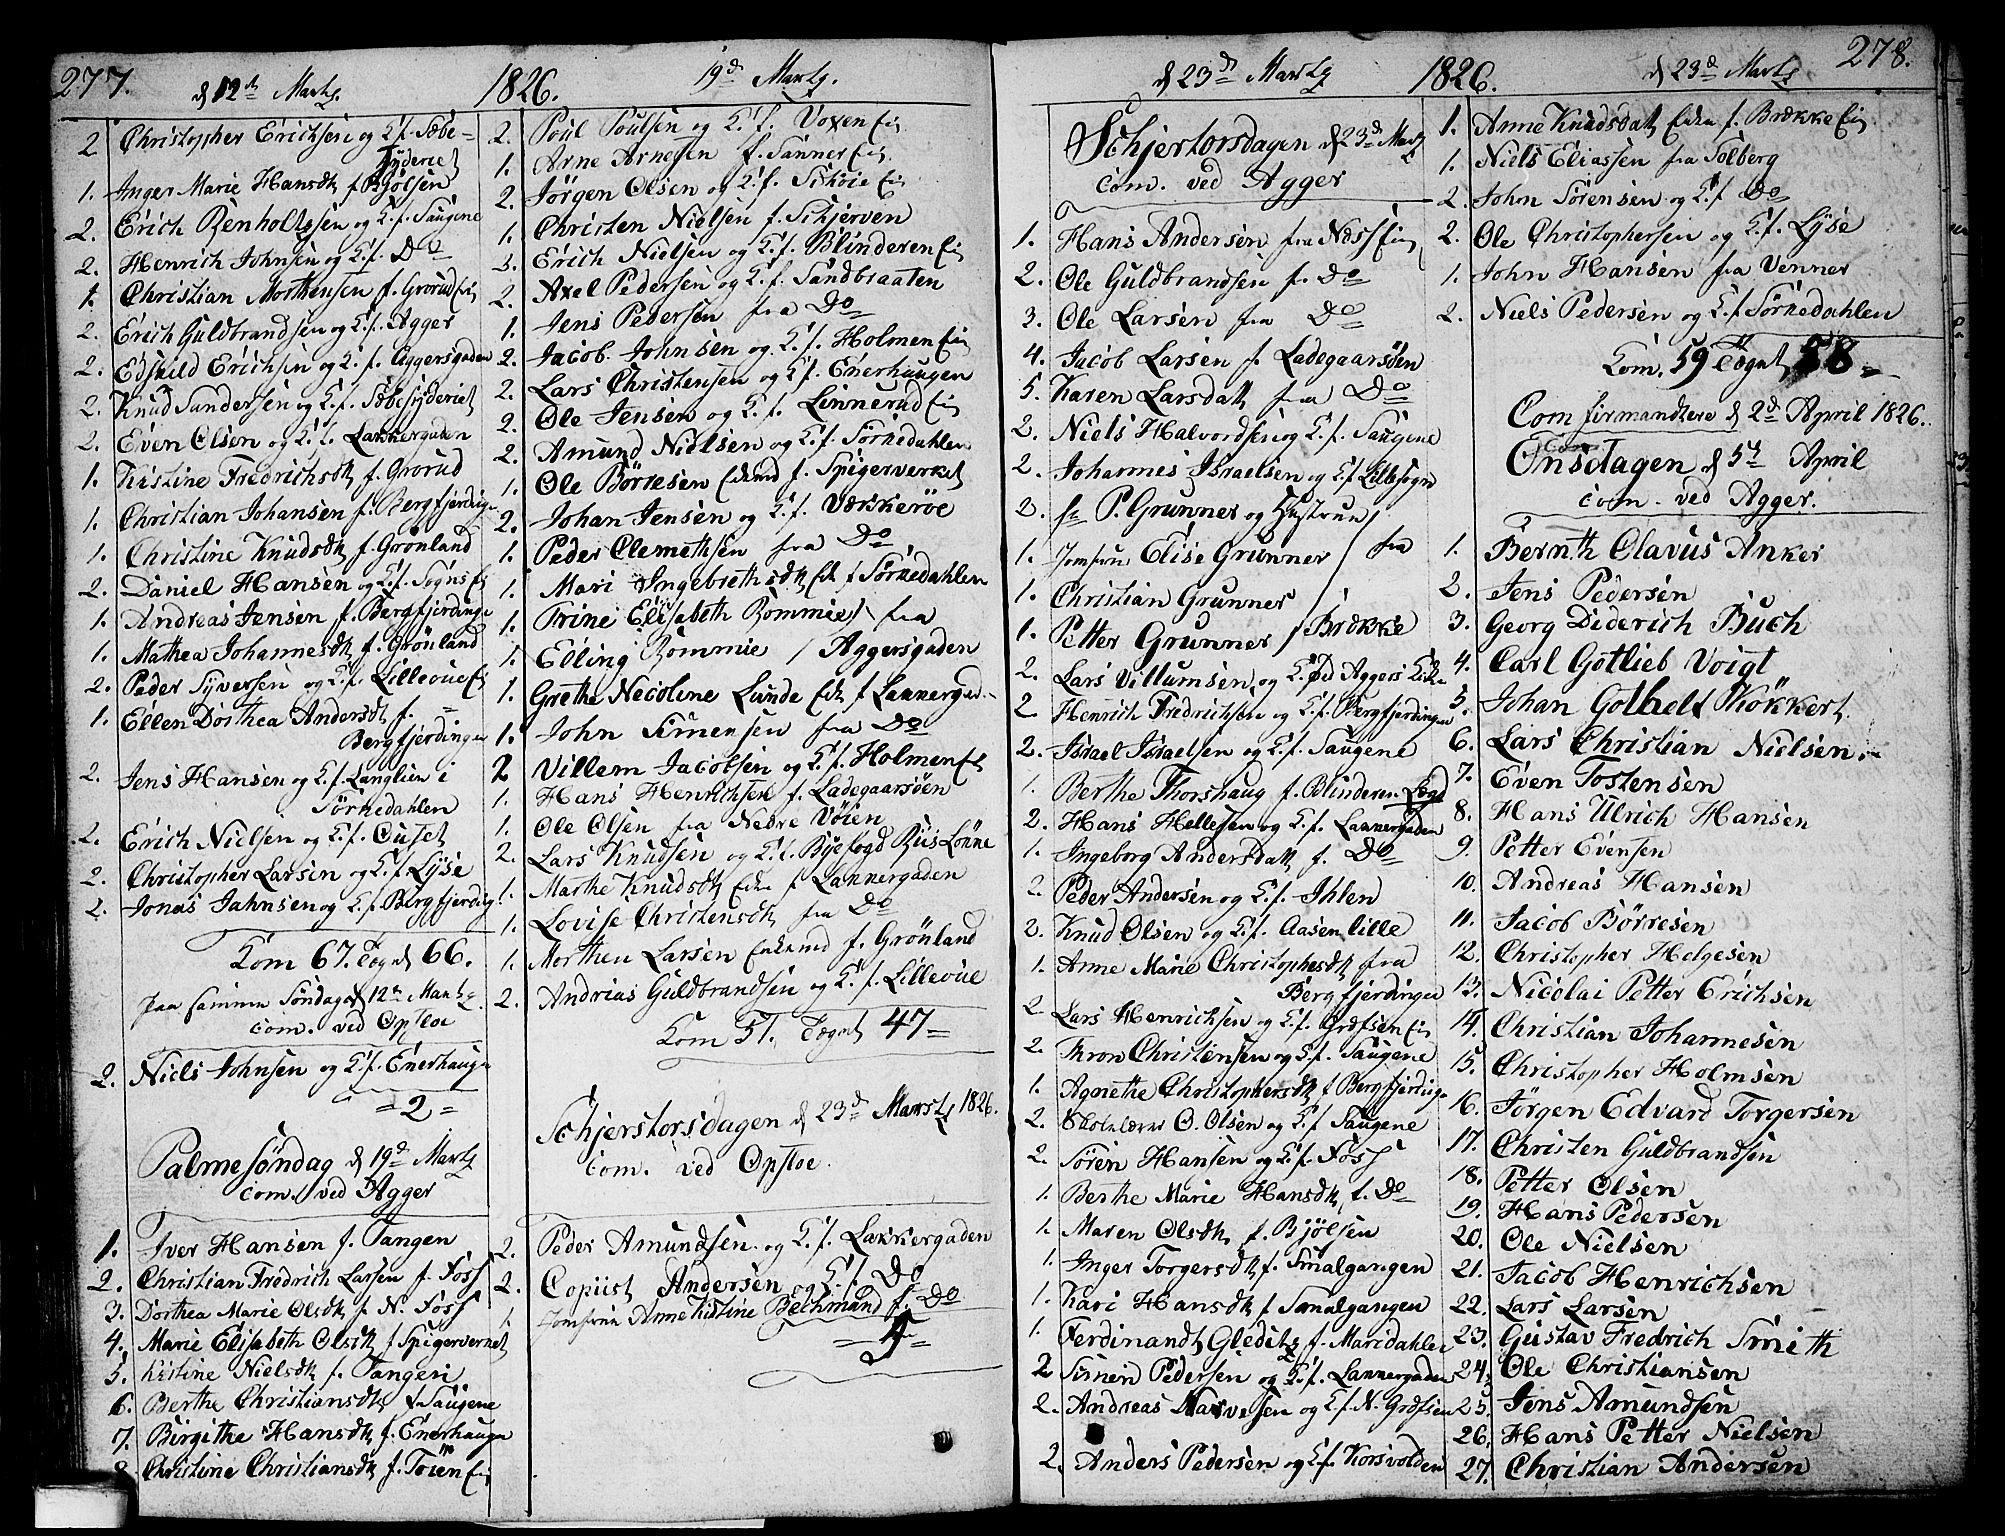 277.
d 12te Martz.
1826.
19d Martz.
2 Christopher Erichsen og K. f. Sæbe=
Syderiet
1. Inger Marie Hansdtr f Bjölsen
2. Erich Benholtssen og K. f. Saugene
2. Henrich Johnsen og K. f. Do
1. Christian Morthensen f. Grorud Ei
2. Erich Guldbrandsen og K. f. Agger
2. Edskild Erichsen og K. f. Aggersgaden
2. Knud Sandersen og K. f. Sæbesyderiet
2. Even Olsen og K. f. Lakkergaden
1. Kistine Fredrichsdtr f. Grorud
1. Christian Johansen f. Bergfjerdinge
1. Christine Knudsdtr f. Grönland
2. Daniel Hansen og K. f. Sogns Ei
1. Andreas Jensen f. Bergfjerdinge
1. Mathea Johannesdtr f. Grönland
2. Peder Syversen og K. f. Lilleoue Ei
1. Ellen Dorthea Andersdtr f. =
Bergfjerdingen
2. Jens Hansen og K. f. Langlien i
Sörkedahlen
2. Erich Nielsen og K. f. Ouset
2. Christopher Larsen og K. f. Lyse
2. Jonas Jahnsen og K. f. Bergfjerding
Kom 67. Tegnet 66.
paa samme Söndag d 12te Martz.
com. ved Opsloe
2. Niels Johnsen og K. f. Enerhauge
= 2 =
Palmesöndag d 19d Martz
com. ved Agger
1. Iver Hansen f. Tangen
2. Christian Fredrich Larsen f. Foss
3. Dorthea Marie Olsdtr f N. Foss
4. Marie Elisabeth Olsdtr f Spigerverket
5. Kistine Nielsdtr f. Tangen
6. Berthe Christiansdtr f Saugene
7. Birgithe Hansdtr f. Enerhauge
8 Christine Christiansdtr f. Töien Ei
2. Poul Poulsen og K. f. Voxen Ei
1. Arne Arnesen f. Sanner Ei
2. Jörgen Olsen og K. f. Schöie Ei
1. Christen Nielsen f. Schjerven
3. Erich Nielsen og K. f. Blinderen Ei
2. Axel Pedersen og K. f. Sandbraaten
1. Jens Pedersen fra Do
2. Jacob Johnsen og K. f. Holmen Ei
2. Lars Christensen og K. f. Enerhaugen
2. Ole Jensen og K. f. Linnerud Ei
2. Amund Nielsen og K. f. Sörkedahlen
1. Ole Börresen Eskmd f. Spigerverket
2. Johan Jensen og K. f. Vækkeröe
1. Peder Clemethsen fra Do
1. Mari Ingebrethsdtr Eke f Sörkedahlen
1. Trine Elisabeth Bommie / fra
1. Elling Bommie / Aggersgaden
1. Grethe Necoline Lunde Eke f Lakkergad.
1. John Simensen fra Do
2 Villem Jacobsen og K. f. Holmen Ei
1. Hans Henrichsen f. Ladegaarsöen
1. Ole Olsen fra Nedre Vöien
2. Lars Knudsen og K. f. Byefogd Buis Lökke
1. Marthe Knudsdtr Eke f Lakkergaden
1. Lovise Christensdtr fra Do
1. Morthen Larsen Enkemd f. Grönland
2. Andrias Guldbrandsen og K. f. Lilleoue
Kom 51. Tegnet 47=
Schjerstorsdagen d 23d Martz 1826.
com. ved Opsloe.
2. Peder Amundsen og K. f. Lakkergaden
2. Copiist Andersen og K. f. Do
1. Jomfrue Anne Kistine Bechmand f. Do
= 5 =
d 23d Martz
1826.
d 23d Martz
278.
Schjertorsdagen d 23d Martz
com. ved Agger
1. Hans Andersen fra Næss Ei
2. Ole Guldbrandsen f. Do
3. Ole Larsen fra Do
4. Jacob Larsen f. Ladegaarsöen
5. Karen Larsdatr fra Do
2. Niels Halvordsen og K. f. Saugene
2. Johannes Israelsen og K. f. Lillesogn
2. hr P. Grunner og Hustrue /
1. Jomfrue Elise Grunner / fra
1. Christian Grunner /
1. Petter Grunner / Brække
2. Lars Villumsen og K. ved Aggers Kirke
2. Henrich Fredrichsen og K. f. Bergfjerdingen
2. Israel Israelsen og K. f. Saugene
1. Berthe Thorshaug f. Blinderen Legd
2. Hans Hellesen og K. f. Lakkergaden
1. Ingeborg Andersdatr f. Do
2. Peder Andersen og K. f. Ihlen
2. Knud Olsen og K. f. Aasen lille
1. Anne Marie Christophesdtr fra
Bergfjerdingen
2 Lars Henrichsen og K. f. Grefsen Ei
2. Thron Christensen og K. f. Saugene
1. Agnethe Christophersdtr f Bergfjerdinge
2. Skolelærer O. Olsen og K. f. Saugene
2. Sören Hansen og K. f. Foss
1. Berthe Marie Hansdtr f. Do
1. Maren Olsdtr f. Bjölsen
1. Inger Torgersdtr f. Smalgangen
1. Kari Hansdtr f. Smalgangen
1. Ferdinandt Gleditz f. Maridahlen
2 Simen Pedersen og K. f. Lakkergaden
2. Andreas Narvesen og K. f. N. Grefsen
2. Anders Pedersen og K. f. Korsvolden
1. Anne Knudsdatr Eke f. Brække Ei
1. Niels Eliassen fra Solberg
2. John Sörensen og K. f. Do
2. Ole Christophersen og K. f. Lyse
1. John Hansen fra Venner
2. Niels Pedersen og K. f Sörkedahlen
Kom. 59 Tegnet 58=
Comfirmandtere d 2d April 1826.
Onsdagen d 5te April
com. ved Agger.
1. Bernth Olavus Anker
2. Jens Pedersen
3. Georg Diderich Buch
4. Carl Gotlieb Voigt
5. Johan Gothelf Kökkert
6. Lars Christian Nielsen
7. Even Tostensen
8. Hans Ulrich Hansen
9. Petter Evensen
10. Andreas Hansen
11. Jacob Börresen
12. Christopher Helgesen
13. Nicolai Petter Erichsen
14. Christian Johannesen
15. Christopher Holmsen
16. Jörgen Edvard Torgersen
17. Christen Guldbrandsen
18. Petter Olsen
19. Hans Pedersen
20. Ole Nielsen
21. Jacob Henrichsen
22. Lars Larsen
23. Gustav Fredrich Smith
24. Ole Christiansen
25. Jens Amundsen
26. Hans Petter Nielsen
27. Christian Andersen